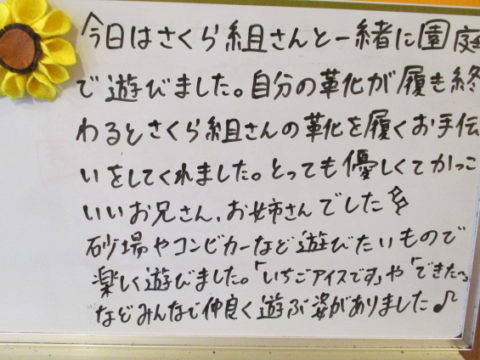 今日はさくら組さんと一緒に園庭
で遊びました。自分の靴が履き終
わるとさくら組さんの靴を履くお手伝
いをしてくれました。とっても優しくてかっこ
いいお兄さん、お姉さんでした
砂場やコンビカーなど遊びたいもので
楽しく遊びました。「いちごアイスです」や「できた〜」
などみんなで仲良く遊ぶ姿がありました♪